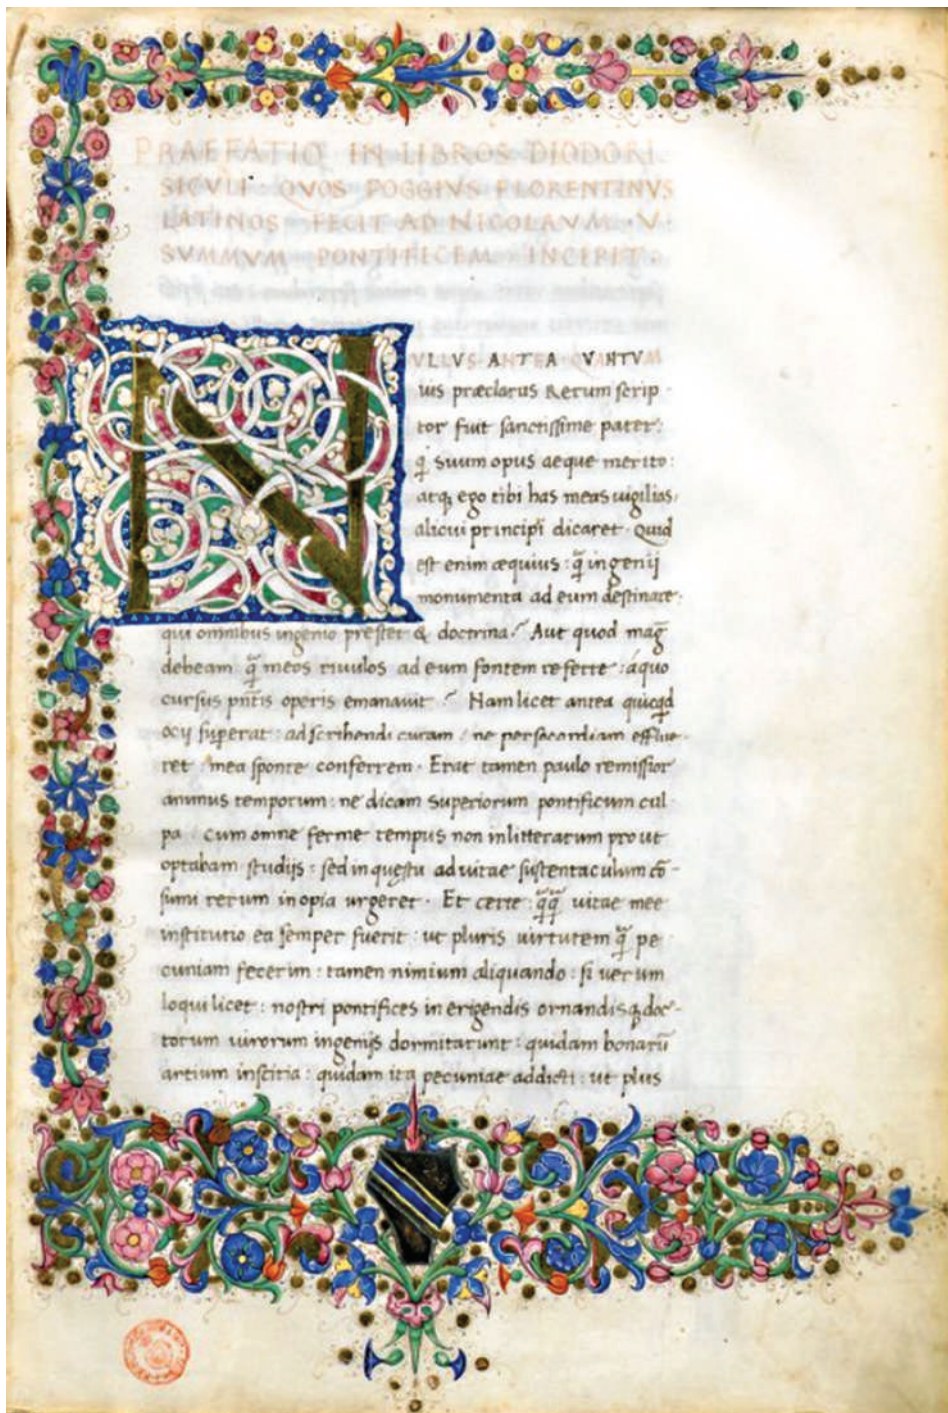 PRAEFATIO IN LIBROS DIODORI
SICVLI · QVOS POGGIVS FLORENTINVS
LATINOS FECIT AD NICOLAVM · V ·
SVMMVM PONTIFICEM INCEPIT ·
N VLLVS
uis præclarus Rerum scrip
tor fuit sanctissime pater:
q̄ suum opus aeque merito:
atq; ego tibi has meas uigilias:
alicui principi dicaret · Quid
est enim æquius : q̄ ingenij
monumenta ad eum destinare:
qui omnibus ingenio prestet & doctrina? Aut quod maḡ
debeam q̄ meos riuulos ad eum fontem referre : á quo
cursus pñtis operis emanauit ? Nam licet antea quicq̄d
ocij superat : ad scribendi curam : ne per secordiam efflue-
ret : mea sponte conferrem · Erat tamen paulo remissior
animus temporum : ne dicam superiorum pontificum cul
pa : cum omne ferme tempus non in litterarum pro ut
optabam studijs : sed in questu ad uitae sustentaculum cō-
sumi rerum inopia urgeret · Et certe : q̄q̄ uitae mee
institutio ea semper fuerit : ut pluris uirtutem q̄ pe
cuniam fecerim : tamen nimium aliquando : si uerum
loqui licet : nostri pontifices in erigendis ornandisq; doc-
torum uirorum ingenijs dormitarunt : quidam bonarū
artium inscitia : quidam ita pecuniae addicti : ut plus